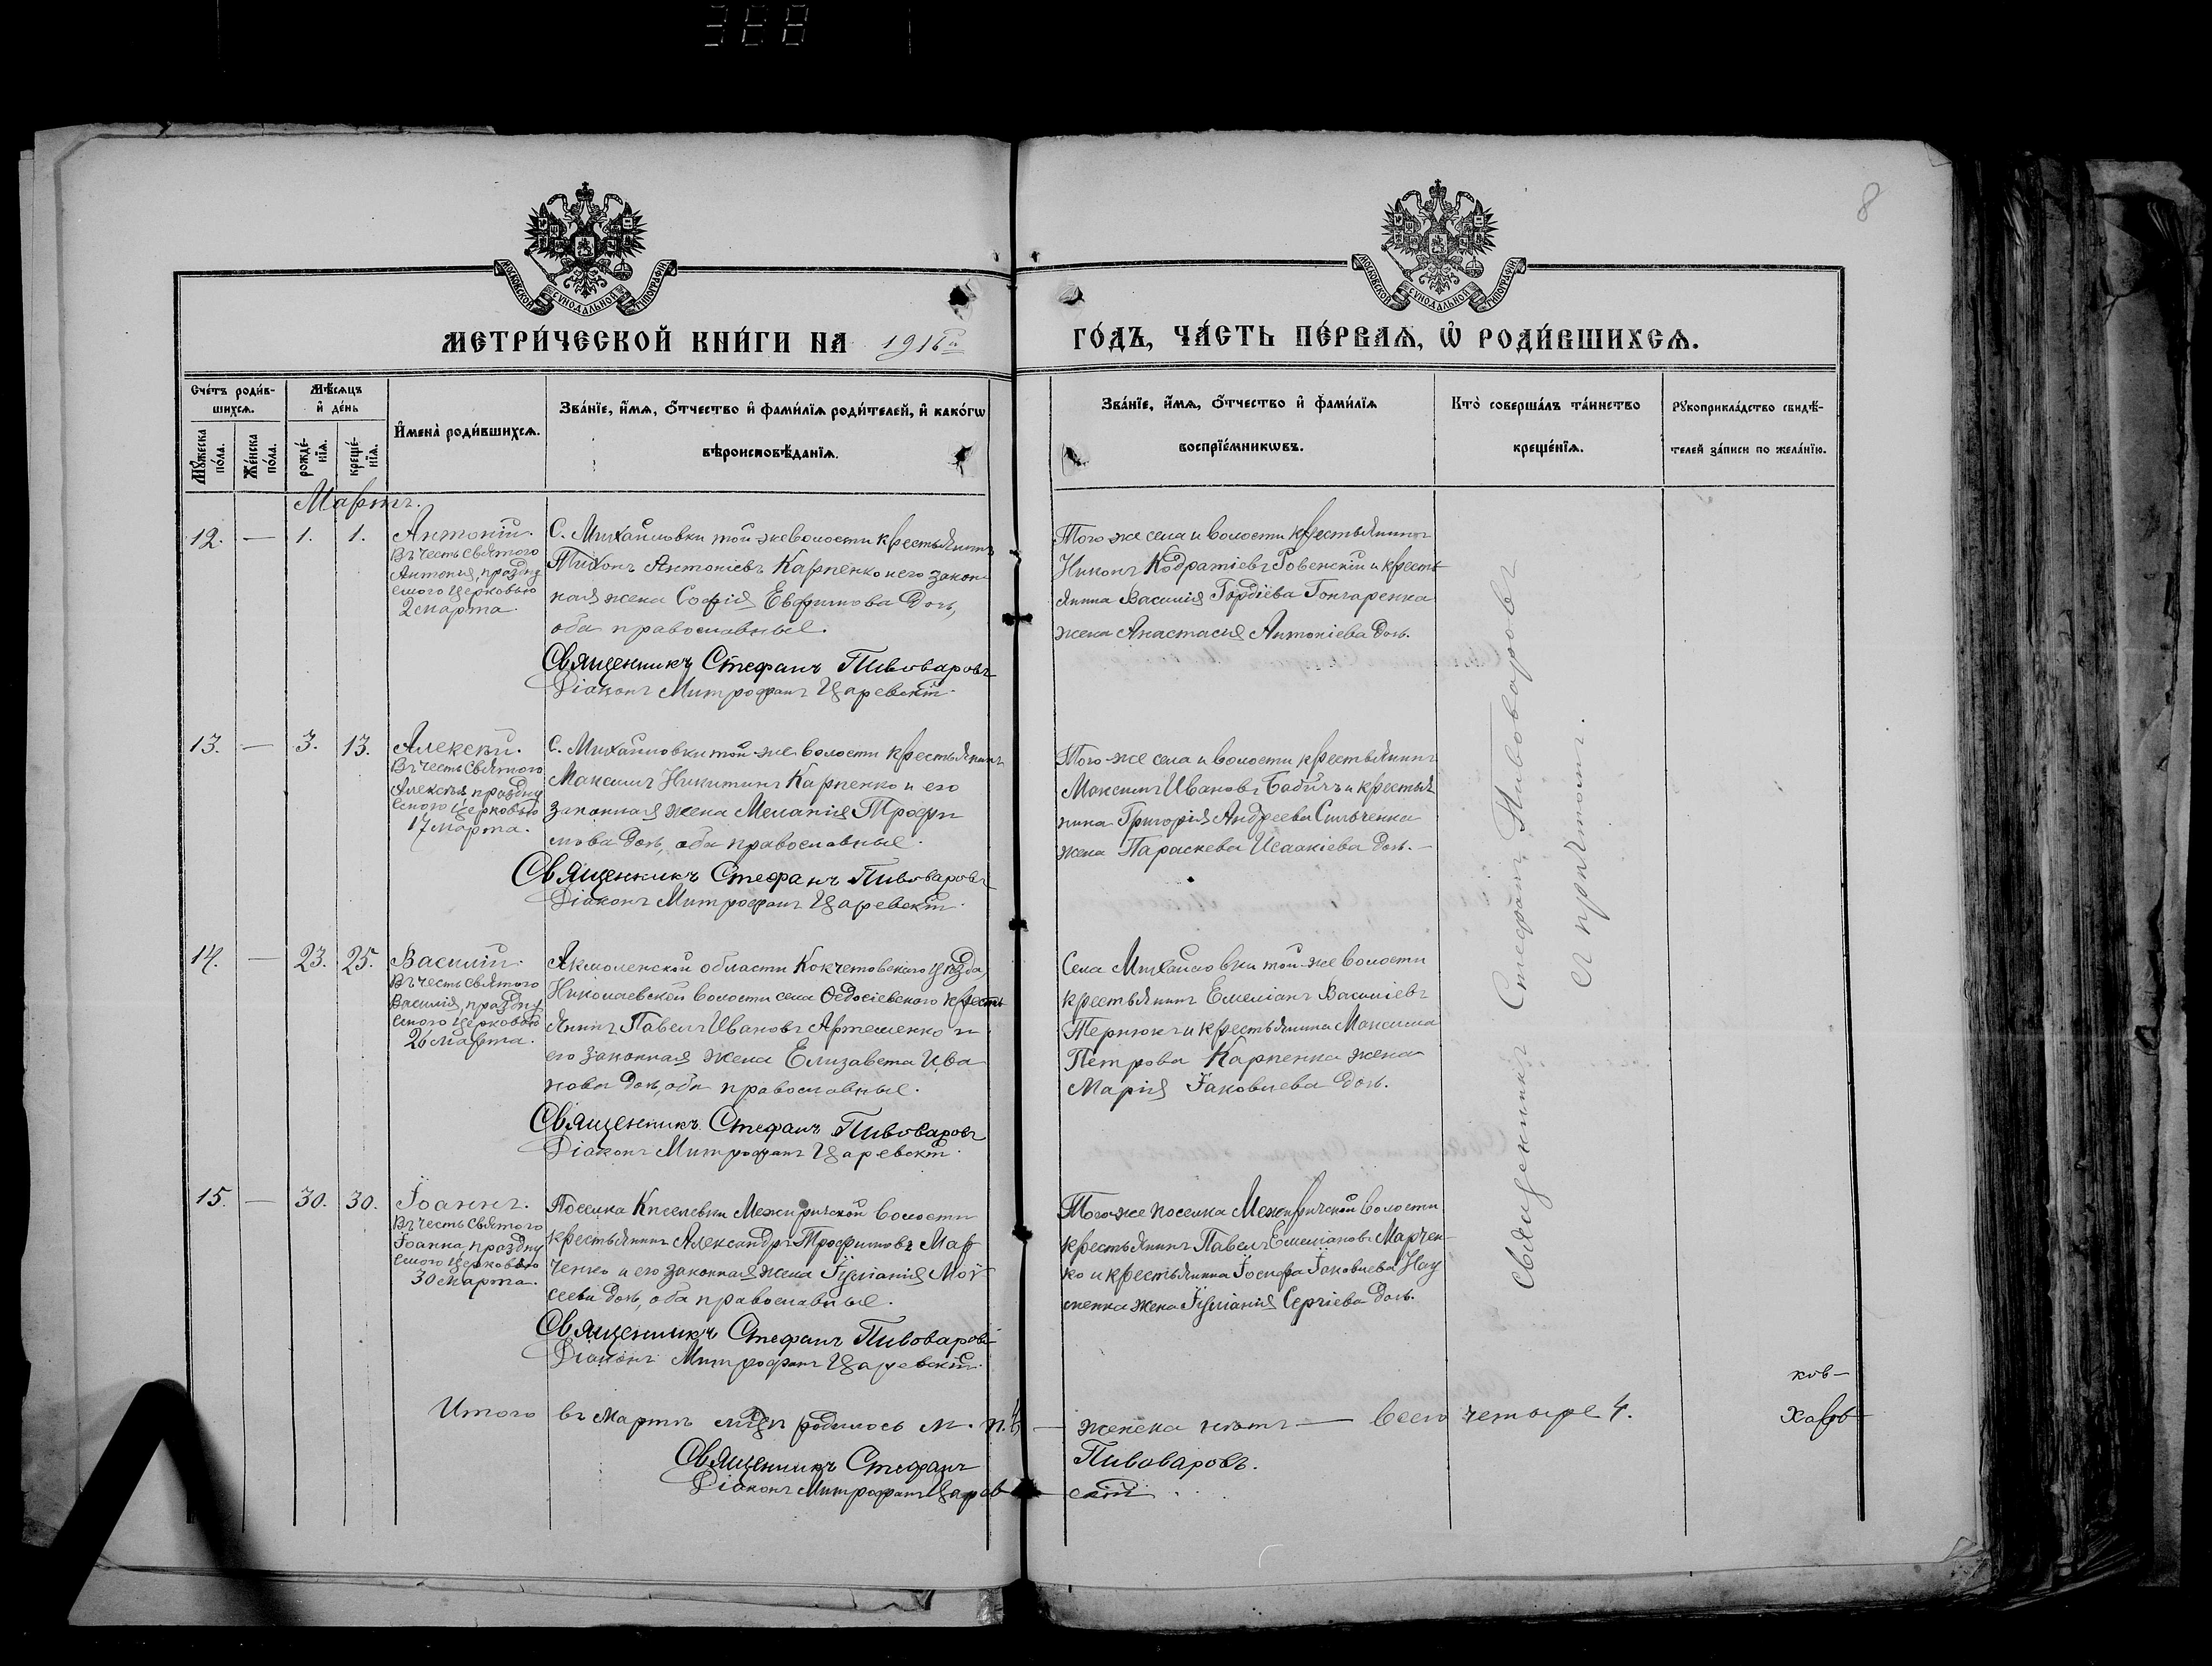 388
8
МОСКОВСКОЙ СУНОДАЛЬНОЙ ТИПОГРАФІИ
МОСКОВСКОЙ СУНОДАЛЬНОЙ ТИПОГРАФІИ
МЕТРИ́ЧЕСКОЙ КНИ́ГИ НА 1916й ГО́ДЪ, ЧА́СТЬ ПЕ́РВАѦ, Ѽ РОДИ́ВШИХСѦ.
Сче́тъ роди́в-
шихсѧ.
Мѣ́сѧцъ
и҆ де́нь
Мꙋ́жеска по́ла.
Же́нска по́ла.
рожде́-
нїѧ.
креще́-
нїѧ.
И҆мена̀ роди́вшихсѧ.
Зва́нїе, и҆́мѧ, ѻ҆́тчество и҆ фами́лїѧ роди́телей, и҆ како́гѡ
вѣроисповѣ́данїѧ.
Зва́нїе, и҆́мѧ, ѻ҆́тчество и҆ фами́лїѧ
воспрїе́мникѡвъ.
Кто̀ соверша́лъ та́инство
креще́нїѧ.
Рꙋкоприкла́дство свидѣ́-
телей за́писи по жела́нїю.
Мартъ.
12. — 1. 1. Антоній.
Въ честь святого
Антонія, праздну
емого церковью
2 марта.
С. Михайловки той-же волости крестьянинъ
Тихонъ Антоніевъ Карпенко и его закон
ная жена Софія Евфимова дочь,
оба православные.
Священникъ Стефанъ Пивоваровъ
Діаконъ Митрофанъ Царевскій.
Того-же села и волости крестьянинъ
Никонъ Кодратіевъ Ровенскій и кресть
янина Василія Гордіева Гончаренка
жена Анастасія Антоніева дочь.
13. — 3. 13. Алексѣй.
Въ честь святого
Алексѣя, праздну
емого церковью
17 марта.
С. Михайловки той-же волости крестьянинъ
Максимъ Никитинъ Карпенко и его
законная жена Меланія Трофи
мова дочь, оба православные.
Священникъ Стефанъ Пивоваровъ
Діаконъ Митрофанъ Царевскій.
Того-же села и волости крестьянинъ
Максимъ Ивановъ Бабичъ и крестья
нина Григорія Андреева Сильченка
жена Параскева Исаакіева дочь. —
14. — 23. 25. Василій.
Въ честь святого
Василія, праздну
емого церковью
26 марта.
Акмоленской области Кокчетовского уѣзда
Николаевской волости села Ѳедосіевского кресть
янинъ Павелъ Ивановъ Артеменко и
его законная жена Елизавета Ива
нова дочь, оба православные.
Священникъ Стефанъ Пивоваровъ
Діаконъ Митрофанъ Царевскій.
Села Михайловки той-же волости
крестьянинъ Емеліанъ Василіевъ
Тернюкъ и крестьянина Максима
Петрова Карпенка жена
Марія Іаковлева дочь.
15. — 30. 30. Іоаннъ.
Въ честь святого
Іоанна, праздну
емого церковью
30 марта.
Поселка Киселевки Межиричской волости
крестьянинъ Александръ Трофимовъ Мар
ченко и его законная жена Іуліанія Мої
сеева дочь, оба православные.
Священникъ Стефанъ Пивоваровъ
Діаконъ Митрофанъ Царевскій.
Того-же поселка Межиричской волости
крестьянинъ Павелъ Емеліановъ Марчен-
ко и крестьянина Іосифа Іаковлева Нау
менка жена Іуліанія Сергіева дочь.
Священникъ Стефанъ Пивоваровъ
съ причтомъ.
Итого въ Мартѣ мѣсяцѣ родилось м. п. 4 — женска нѣтъ — всего четыре 4.
Священникъ Стефанъ Пивоваровъ.
Діаконъ Митрофанъ Царевскій
ков-
Харь